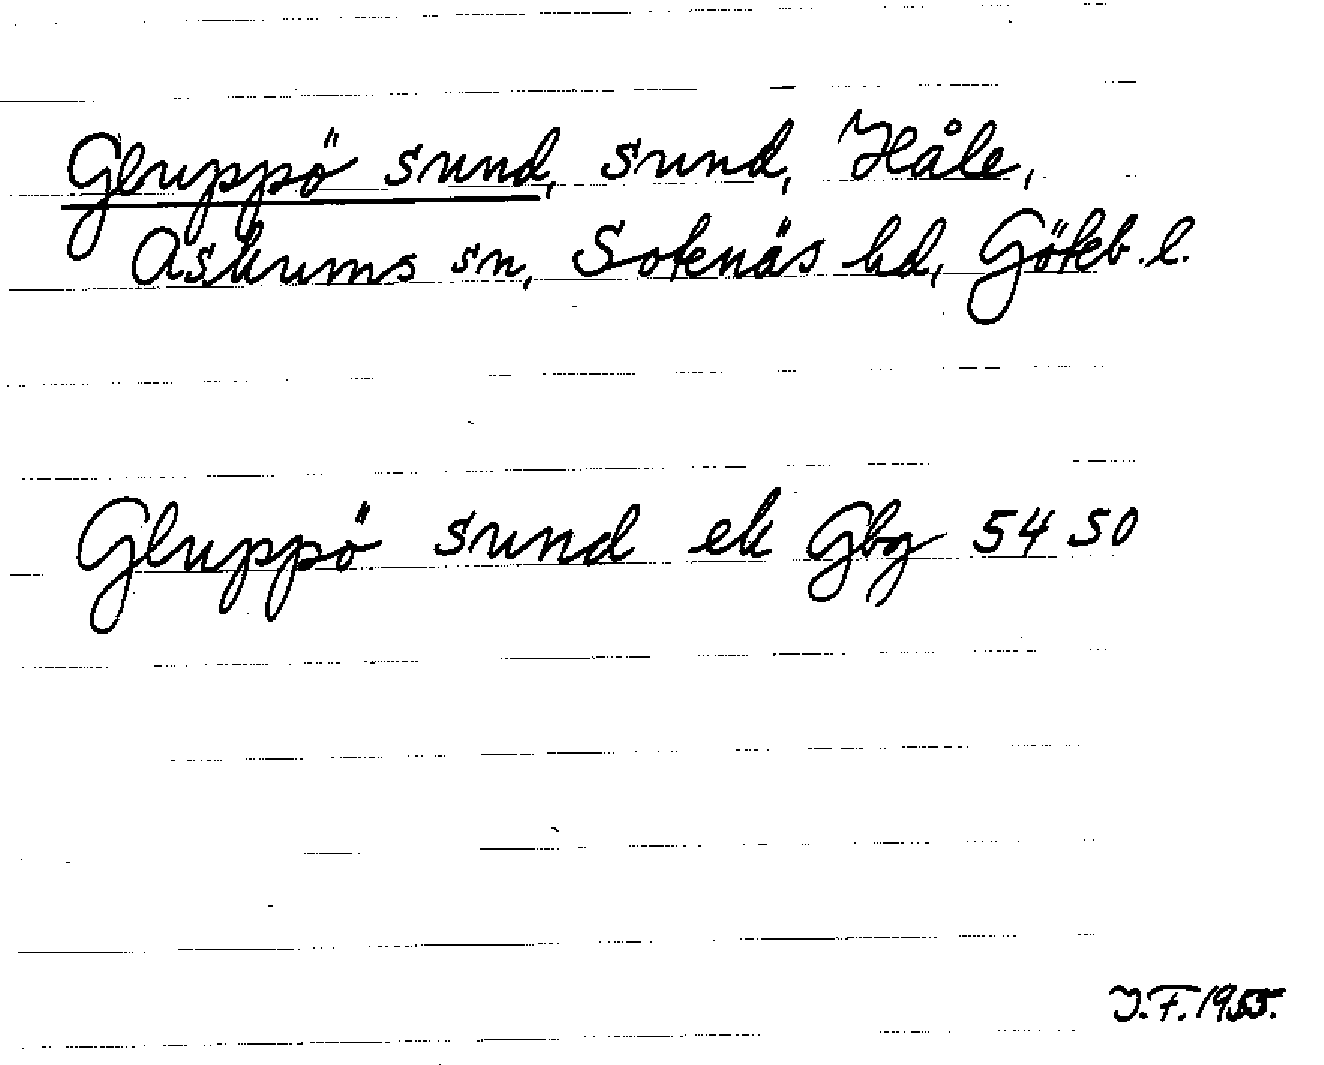 Gluppö sund, sund, Håle,
Askums sn, Sotenäs hd, Göteb. l.
Gluppö sund ek Gbg 54 50
J.F. 1955.